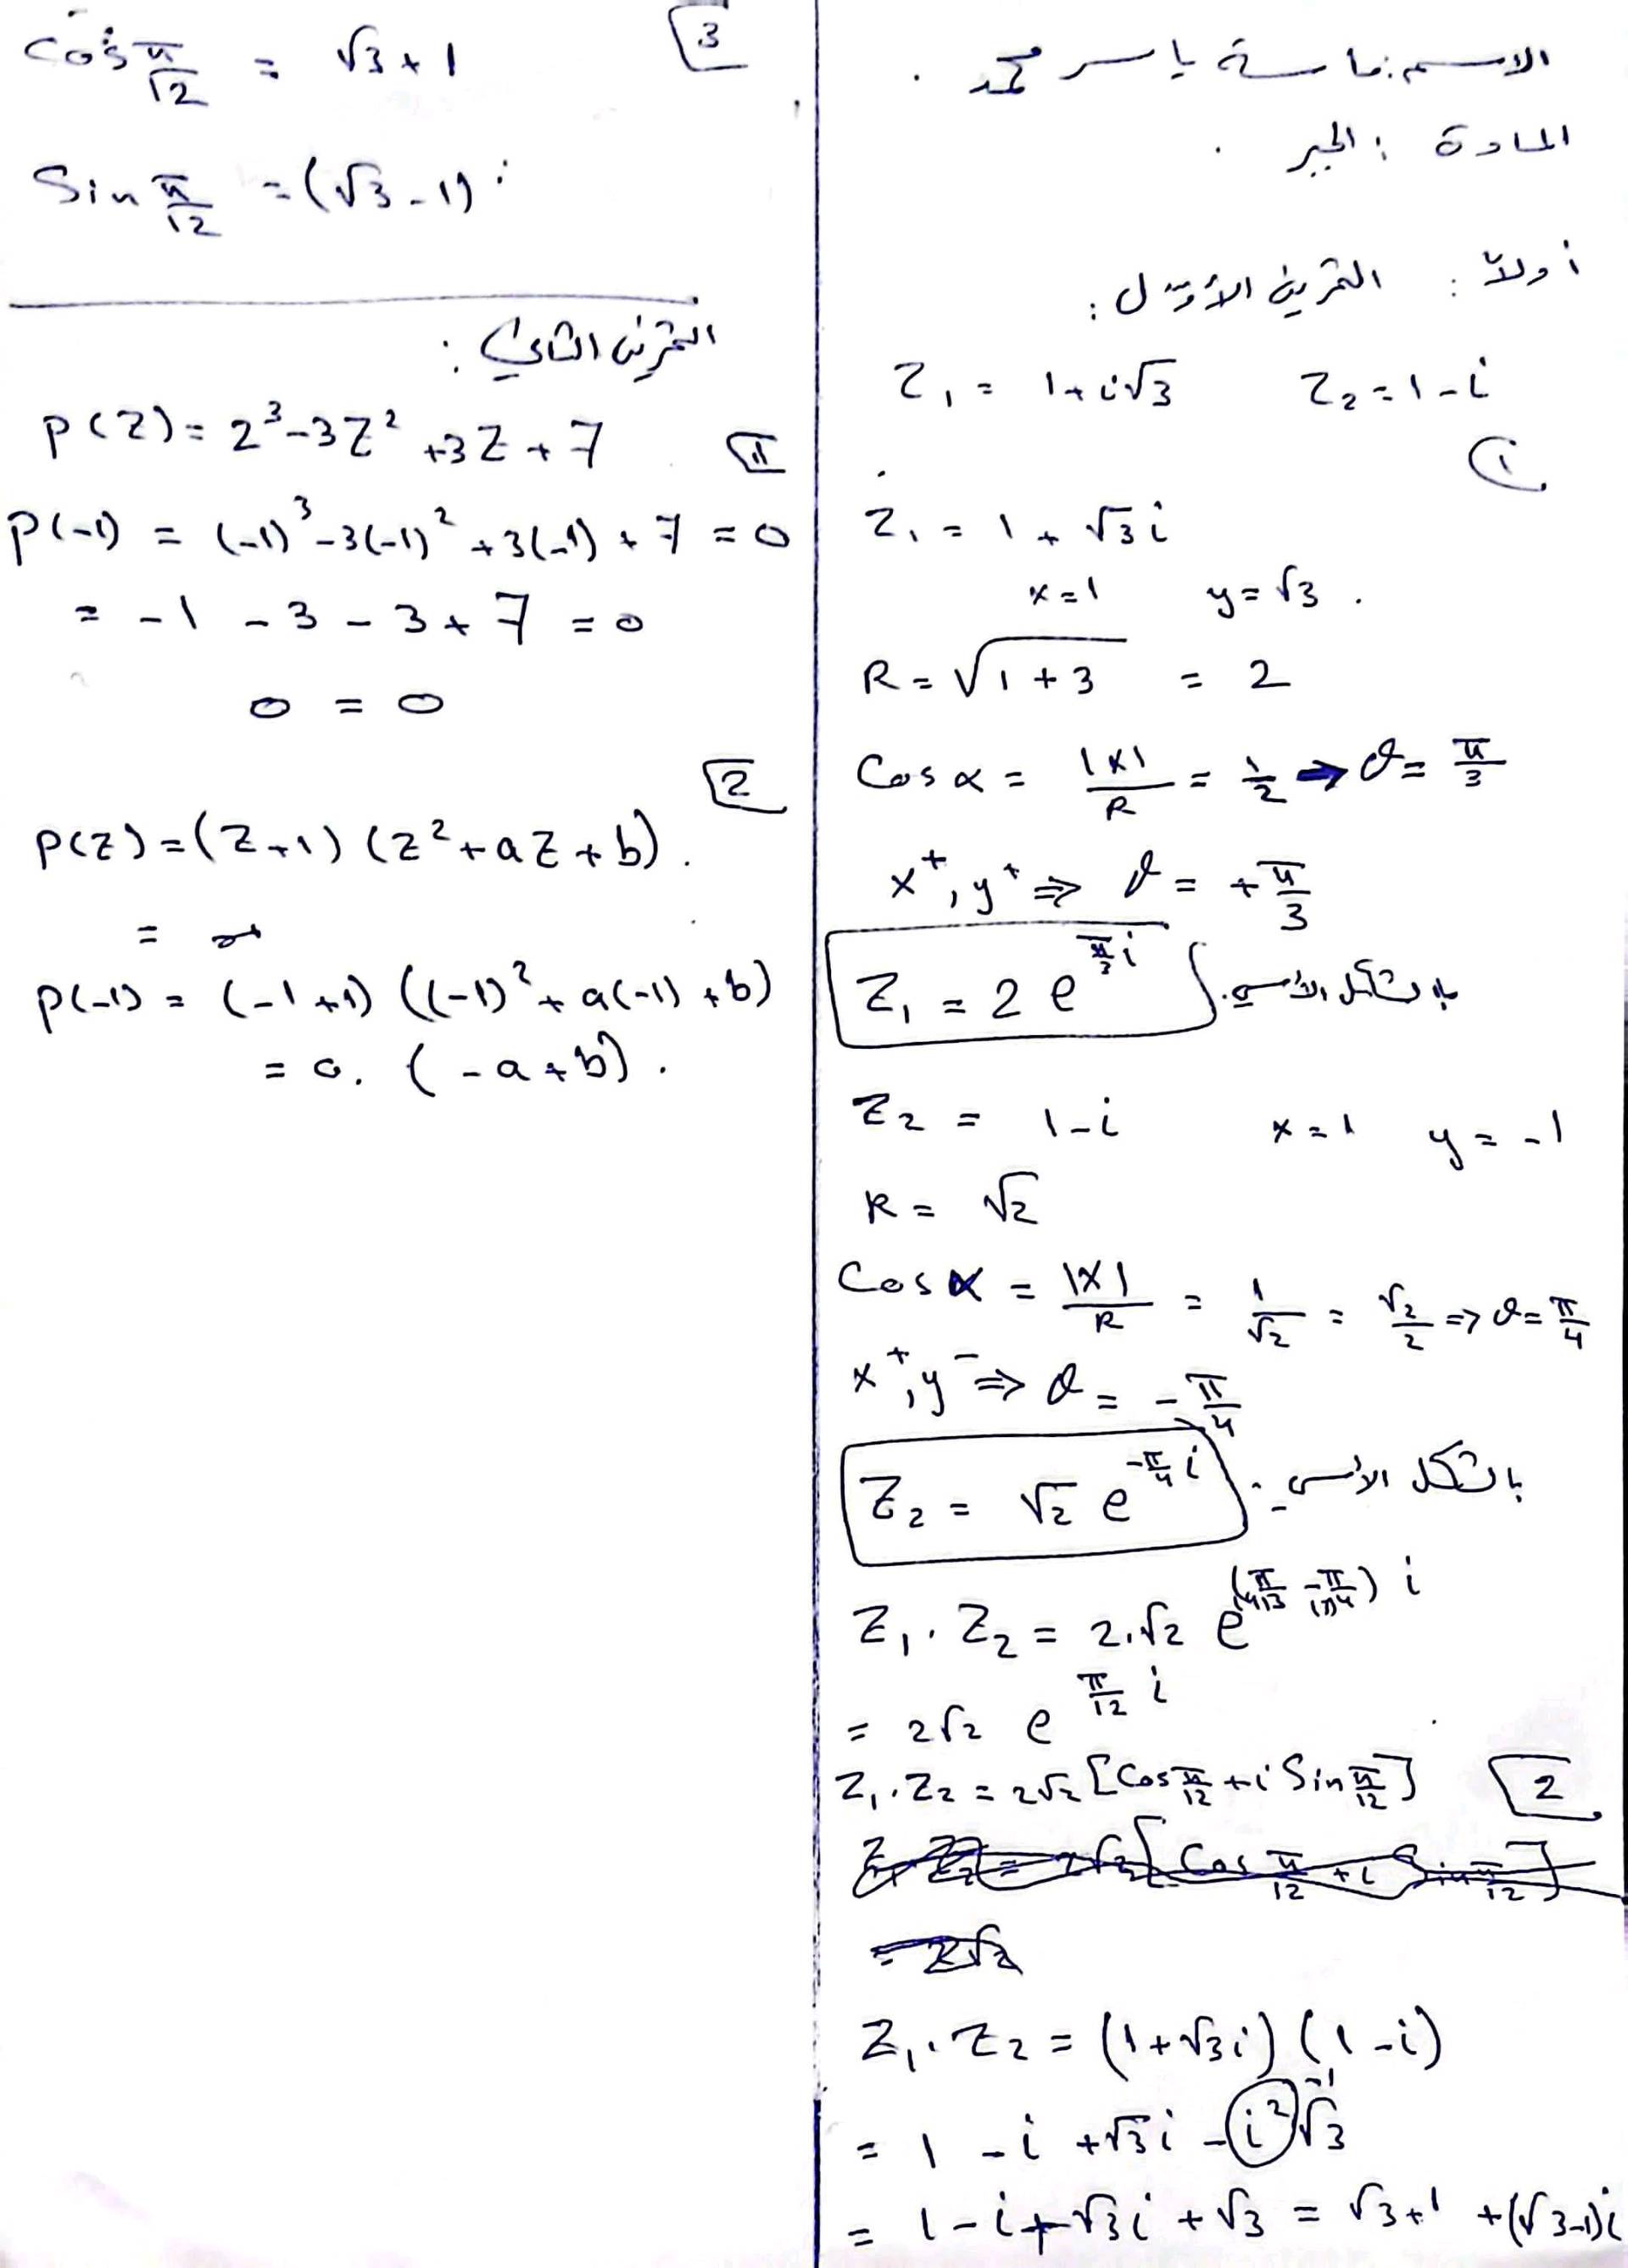 الاسم: ماسة ياسر محمد.
المادة: الجبر.
أولاً: التمرين الأول:
Z₁ = 1+i√3    Z₂ = 1-i
1
Z₁ = 1 + √3 i
x=1    y=√3.
R = √(1+3) = 2
Cos α = |x|/R = 1/2 → θ = π/3
x⁺, y⁺ ⇒ θ = +π/3
Z₁ = 2 e^(π/3 i) بالشكل الأسي.
Z₂ = 1-i    x=1    y=-1
R = √2
Cos α = |x|/R = 1/√2 = √2/2 ⇒ θ = π/4
x⁺, y⁻ ⇒ θ = -π/4
Z₂ = √2 e^(-π/4 i) بالشكل الأسي.
Z₁ . Z₂ = 2.√2 e^((π/(4)3 - π/(3)4) i)
= 2√2 e^(π/12 i)
2
Z₁ . Z₂ = 2√2 [Cos π/12 + i Sin π/12]
Z₁ . Z₂ = (1+√3 i) (1-i)
= 1 - i + √3 i - i² √3
-1
= 1 - i + √3 i + √3 = √3+1 + (√3-1)i
3
Cos π/12 = √3+1
Sin π/12 = (√3-1) i
التمرين الثاني:
1
P(Z) = Z³ - 3Z² + 3Z + 7
P(-1) = (-1)³ - 3(-1)² + 3(-1) + 7 = 0
= -1 - 3 - 3 + 7 = 0
0 = 0
2
P(Z) = (Z+1) (Z² + aZ + b).
=
P(-1) = (-1+1) ((-1)² + a(-1) + b)
= 0. (-a+b).